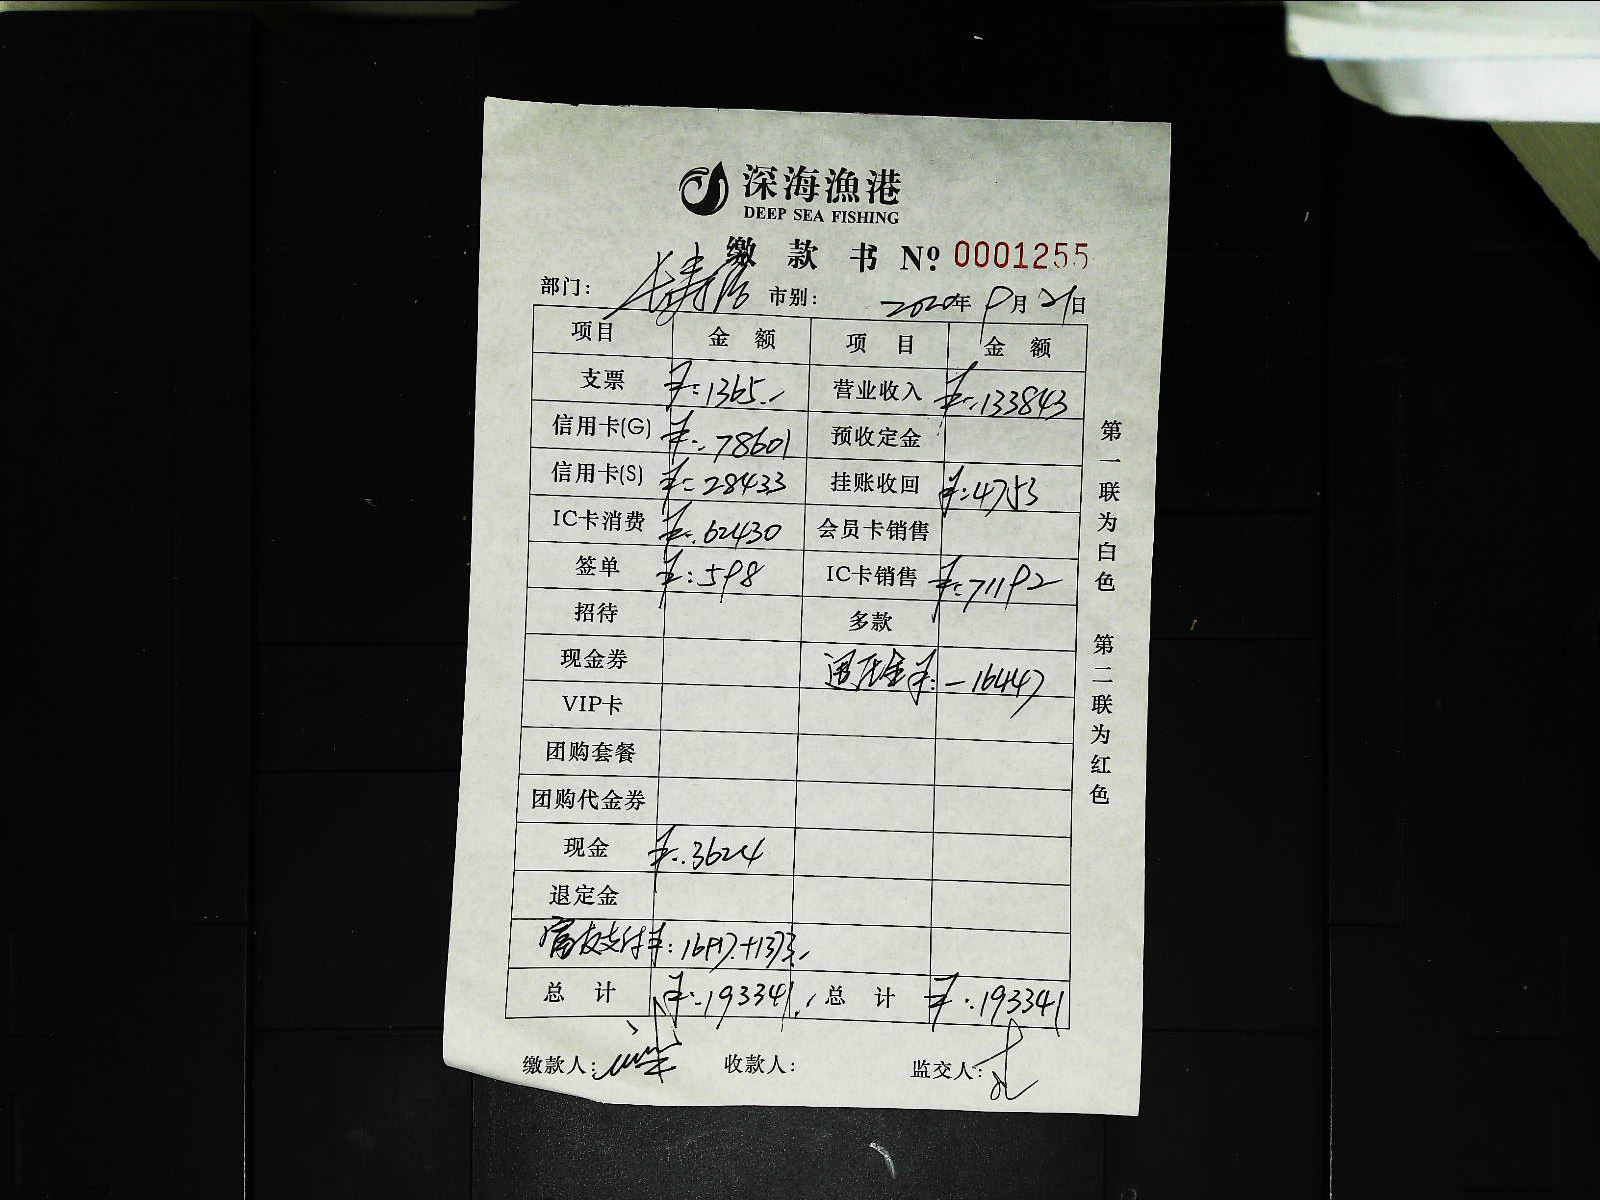 深海漁港
DEEP SEA FISHING
缴款书 Nº 0001255
部门： 长寿店 市别： 2020年9月21日
项目 金额 项目 金额
支票 ¥:1365.- 营业收入 ¥:133843
信用卡(G) ¥:78601 预收定金
信用卡(S) ¥:28433 挂账收回 ¥:4753
IC卡消费 ¥:62430 会员卡销售
签单 ¥:598 IC卡销售 ¥:71192
招待 多款
现金券 ¥:-16447
VIP卡
团购套餐
团购代金券
现金 ¥:3624
退定金
支付 ¥:16917.+1373.-
总计 ¥:193341.- 总计 ¥:193341
缴款人： 收款人： 监交人：
第一联为白色 第二联为红色